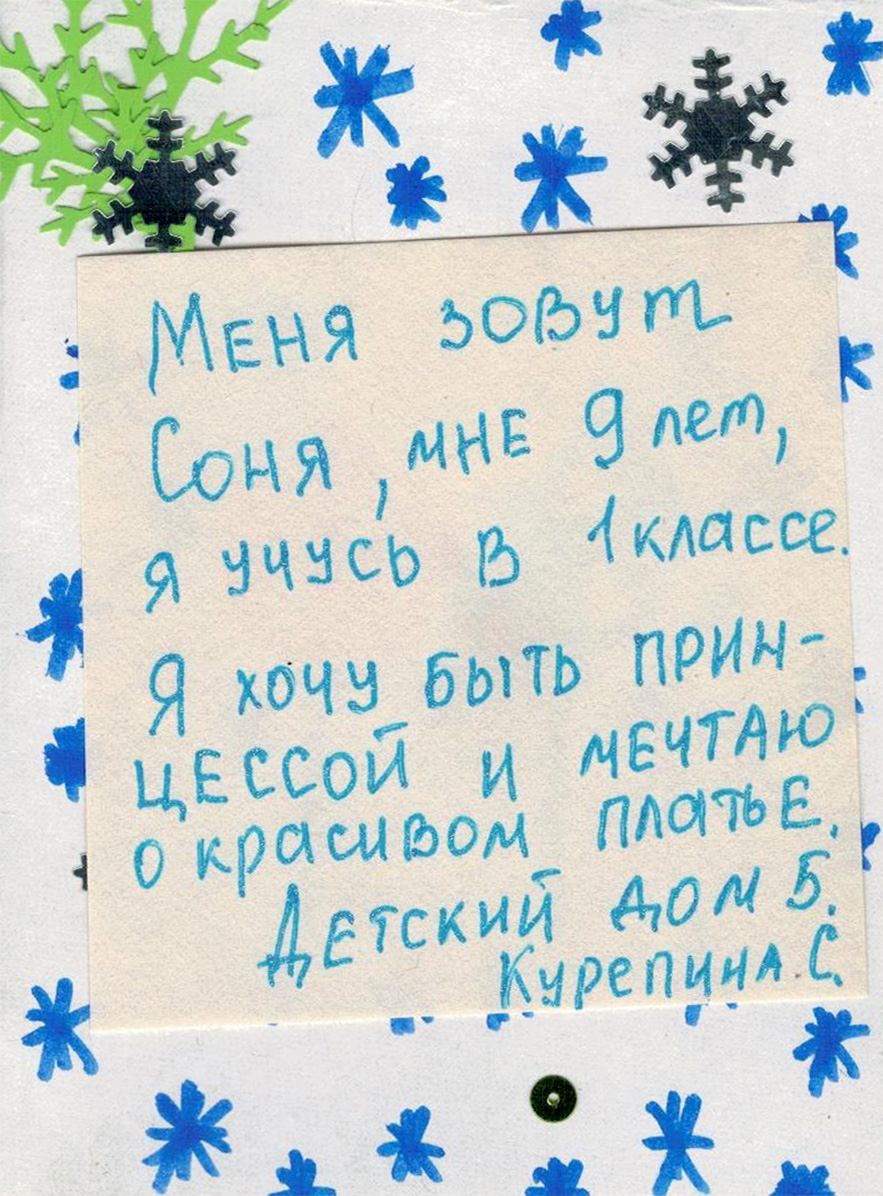 Меня зовут
Соня, мне 9 лет,
я учусь в 1 классе.
Я хочу быть прин-
цессой и мечтаю
о красивом платье.
Детский дом 5.
Курепина С.